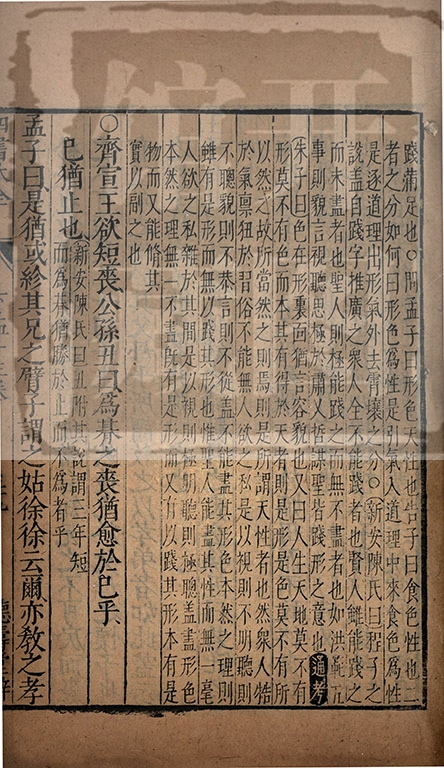 踐滿足也○問孟子曰形色天性也告子曰食色性也二
者之分如何曰形色爲性是引氣入道理中來食色爲性
是逐道理出形氣外去霄壤之分○新安陳氏曰程子之
說蓋自踐字推廣之衆人全不能踐者也賢人雖能踐之
而未盡者也聖人則極能踐之而無不盡者也如洪範五
事則貌言視聽思極於肅乂哲謀聖皆踐形之意也通考
朱子曰色在形裏面猶言容貌也又曰人生天地莫不有
形莫不有色而本其有得於天者則是形是色莫不有所
以然之故所當然之則焉是則所謂天性者也然衆人牿
於氣稟狃於習俗不能無人欲之私是以視則不明聽則
不聰貌則不恭言則不從蓋不能盡其形色本然之理則
雖有是形而無以踐其形也惟聖人能盡其性而無一毫
人欲之私雜於其間是以視則極明聽則極聰蓋盡形色
本然之理無一不盡旣有是形而又有以踐其形本有是
物而又能脩其
實以副之也
○齊宣王欲短喪公孫丑曰爲朞之喪猶愈於已乎
已猶止也新安陳氏曰丑附其說謂三年短
而爲朞猶勝於止而不爲者乎
孟子曰是猶或紾其兄之臂子謂之姑徐徐云爾亦敎之孝